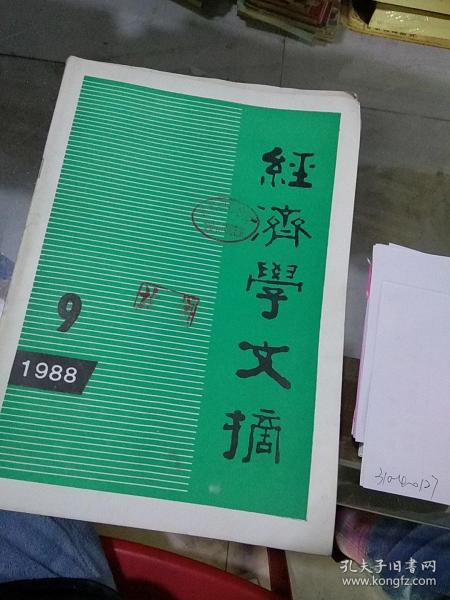 經濟學文摘
9
1988
310-10-0127
孔夫子旧书网
www.kongfz.com